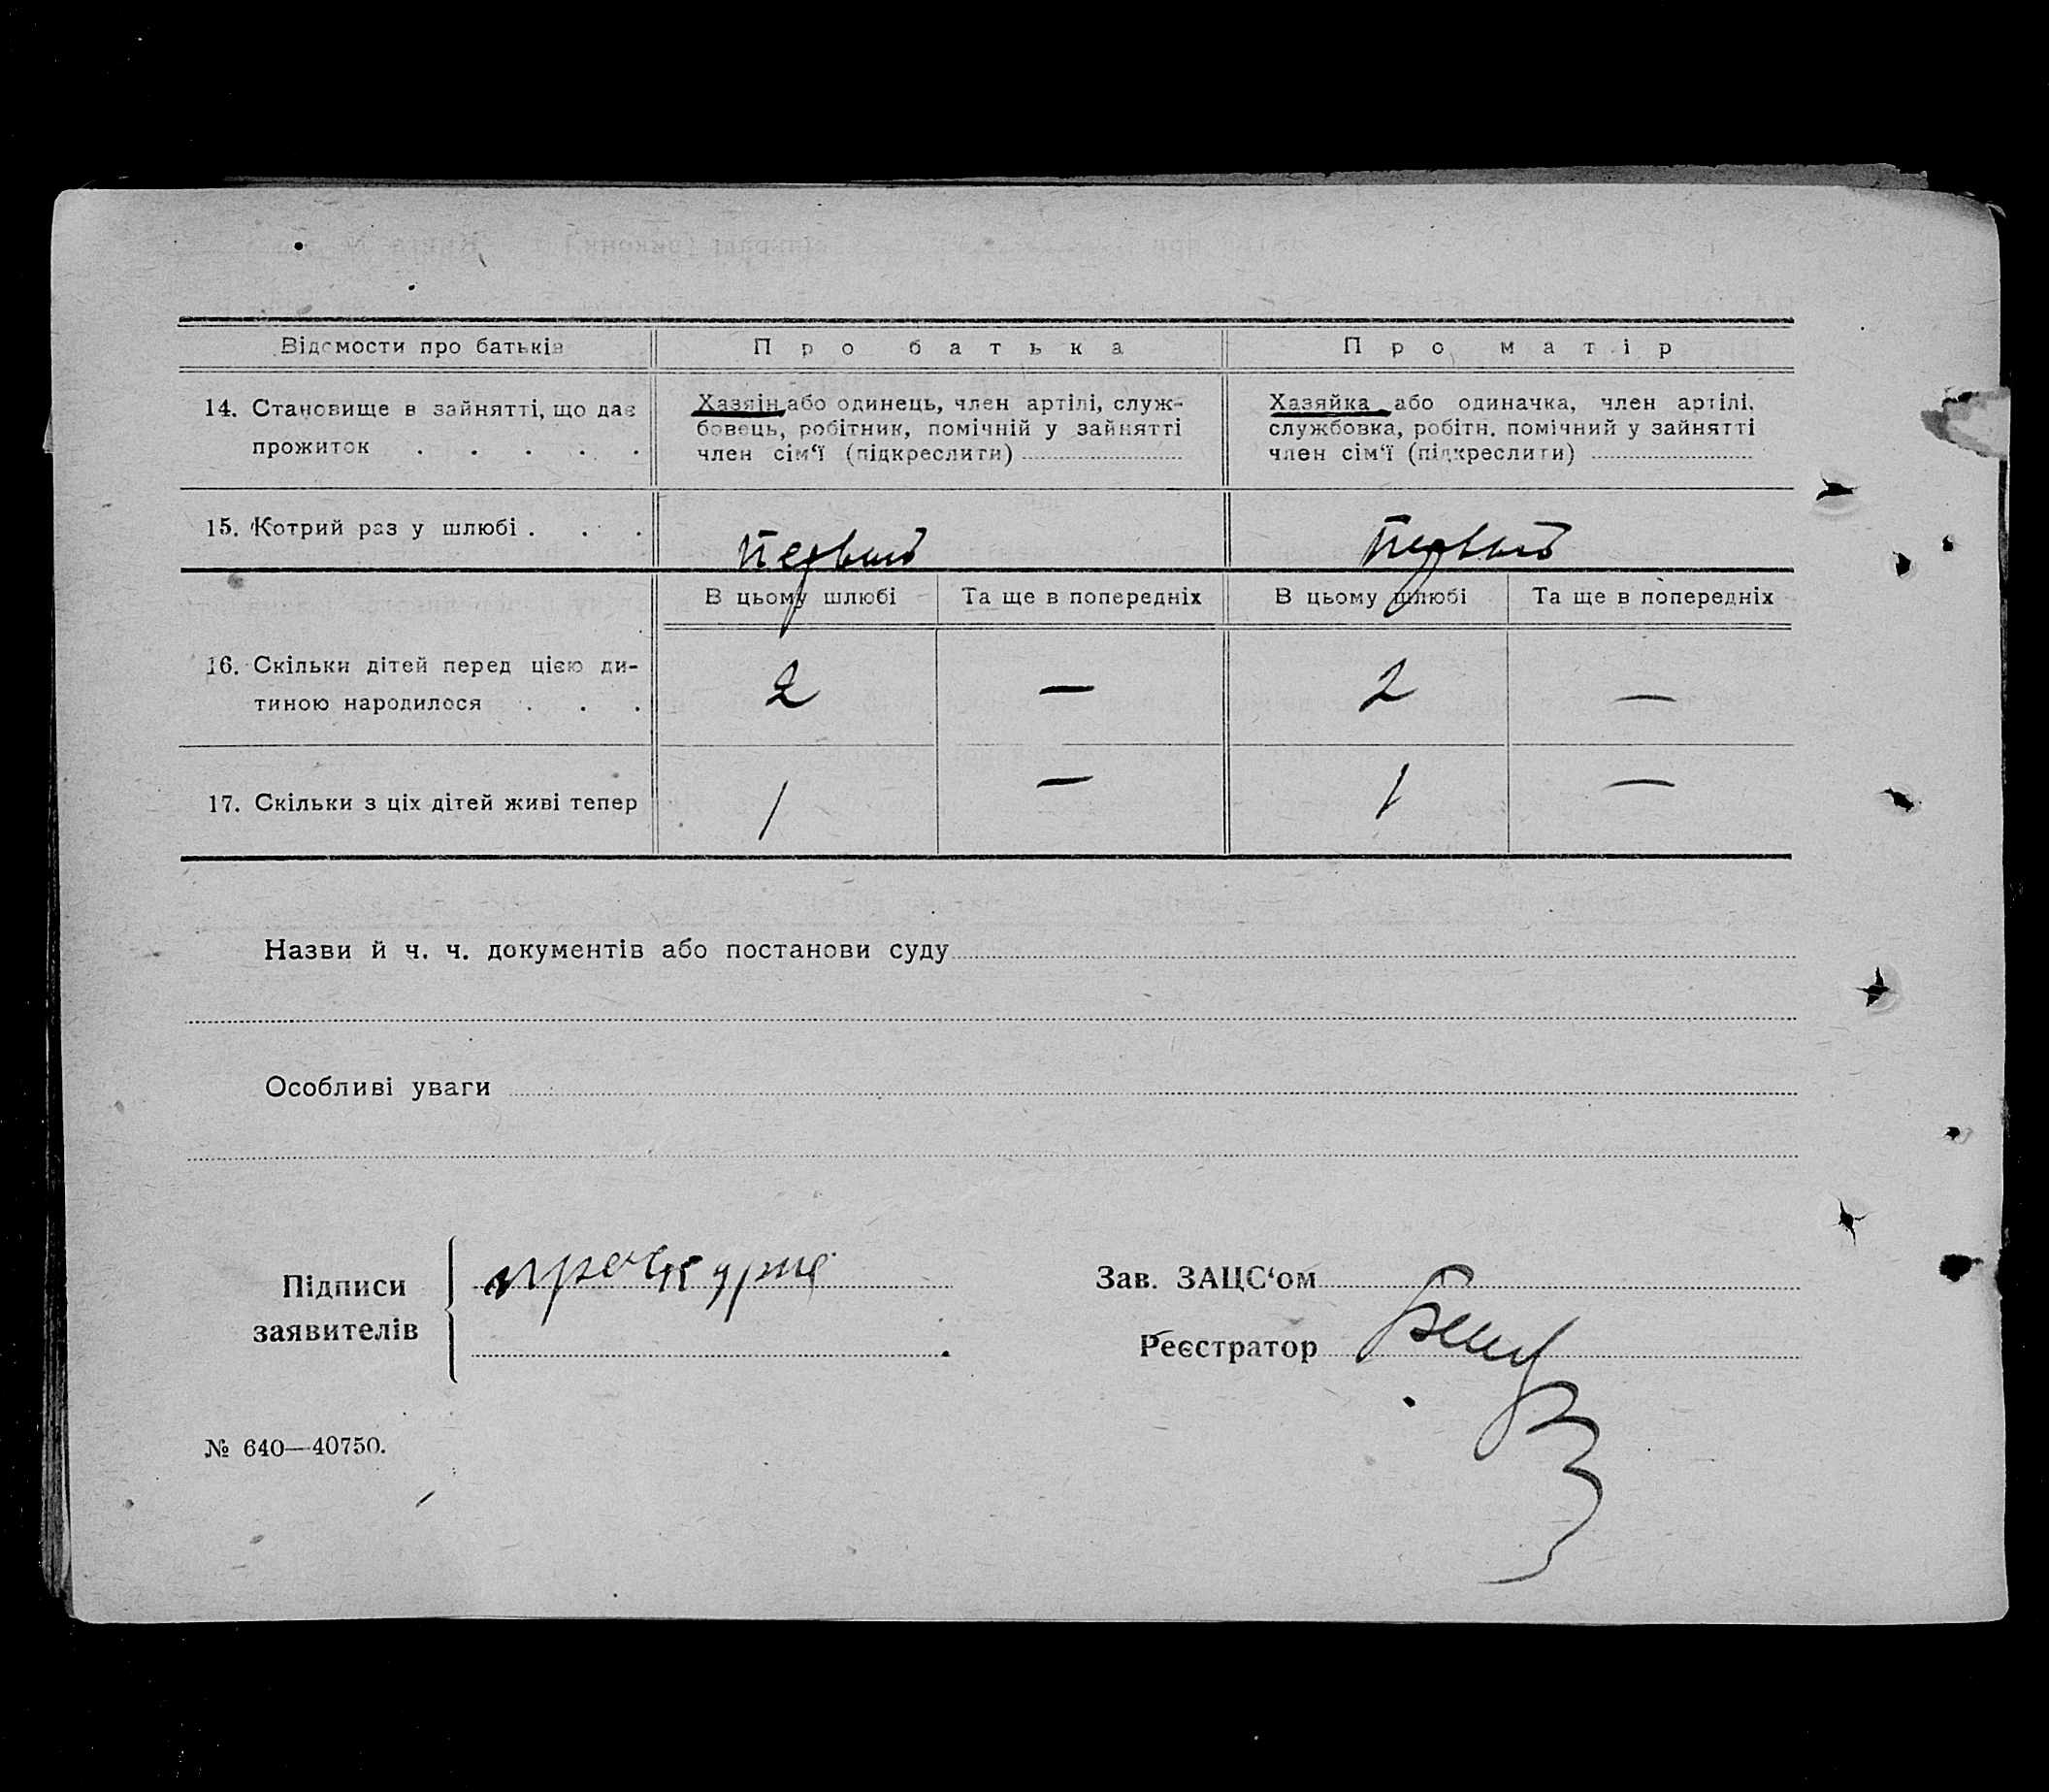 Відомости про батьків
Про батька
Про матір
14. Становище в зайнятті, що дає
прожиток . . . . .
Хазяїн або одинець, член артілі, служ-
бовець, робітник, помічній у зайнятті
член сім‘ї (підкреслити)
Хазяйка або одиначка, член артілі,
службовка, робітн. помічний у зайнятті
член сім‘ї (підкреслити)
15. Котрий раз у шлюбі . . .
Первый
Первый
В цьому шлюбі
Та ще в попередніх
В цьому шлюбі
Та ще в попередніх
16. Скільки дітей перед цією ди-
тиною народилося . . .
2
—
2
—
17. Скільки з ціх дітей живі тепер
1
—
1
—
Назви й ч. ч. документів або постанови суду
Особливі уваги
Підписи
заявителів
Зав. ЗАЦС‘ом
Реєстратор
№ 640—40750.